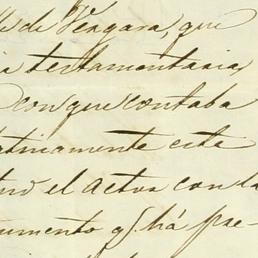 de Vergara, que
a testamentaria
con que contaba
timamente esta
el actor con la
umento q.e há pre-